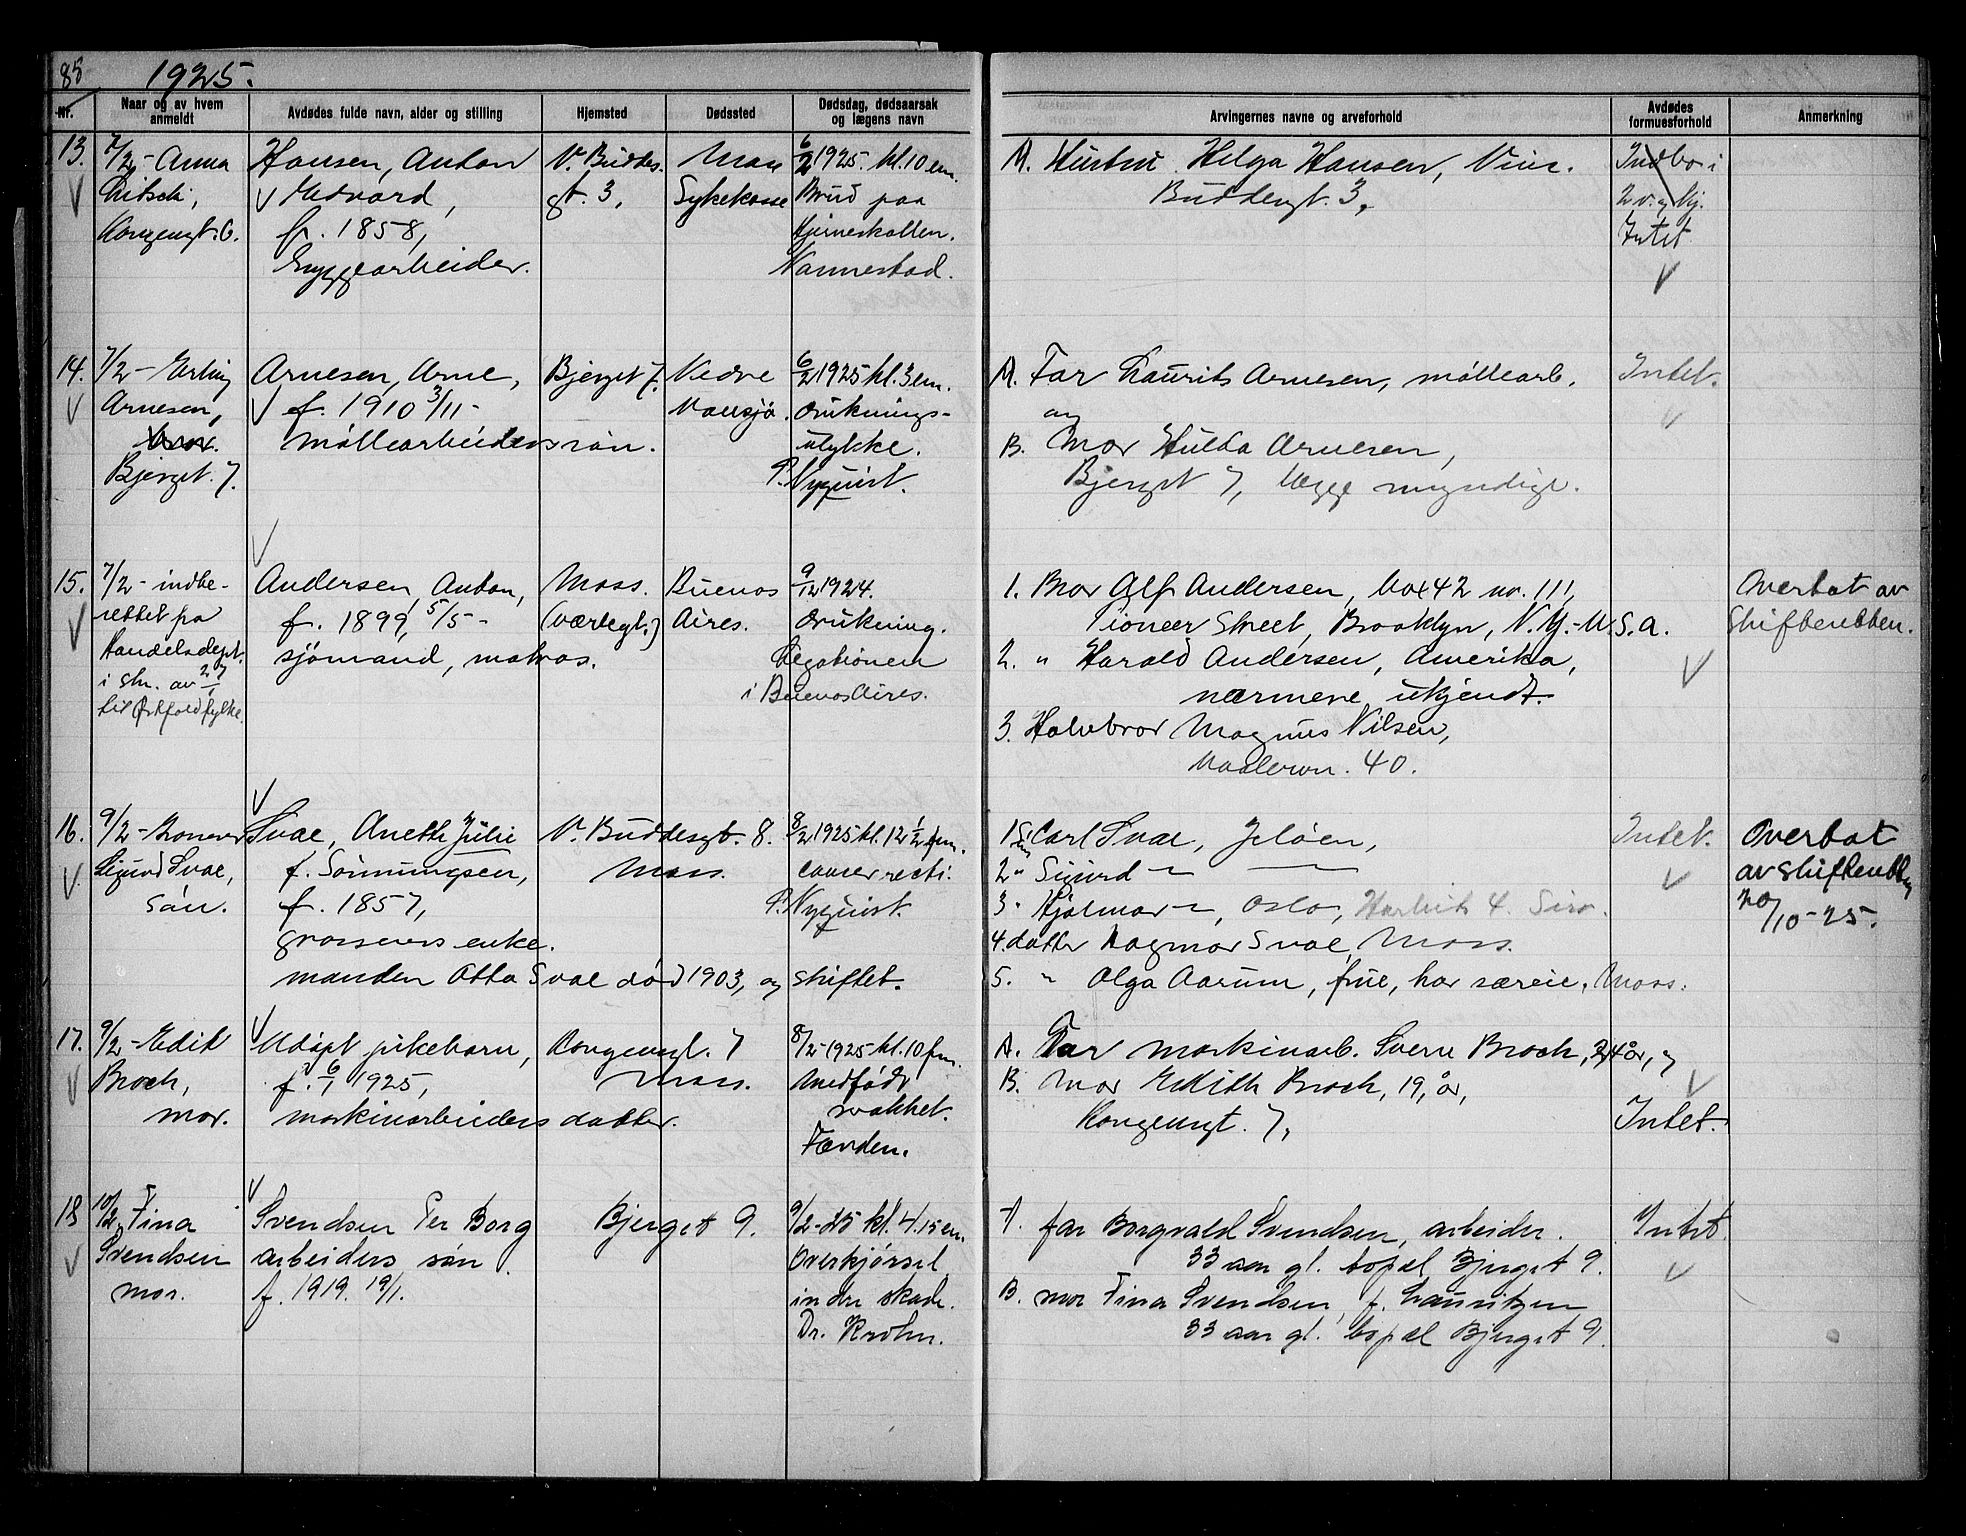 85 1925.
Nr.
Naar og av hvem anmeldt
Avdødes fulde navn, alder og stilling
Hjemsted
Dødssted
Dødsdag, dødsaarsak og lægens navn
Arvingernes navne og arveforhold
Avdødes formuesforhold
Anmerkning
13.
7/2 - Anna
Kongensgt. 6.
Hansen, Anton
Edvard,
f. 1858,
bryggearbeider.
V. Buddes.
gt. 3,
Moss
Sykekasse
6/2 1925. kl. 10 em.
Brud paa
hjerneskallen.
Vannestad.
A. Hustru Helga Hansen, Vinc.
Buddesgt. 3,
Indbo i
2 v. og kj.
Intet
14.
7/2 - Erling
Arnesen,
bror.
Bjerget 7.
Arnesen, Arne,
f. 1910 3/11 -
møllearbeiders søn.
Bjerget 7.
Nedre
Vansjø.
6/2 1925 kl. 3 em.
Druknings-
ulykke.
P. Nyquist.
A. Far Laurits Arnesen, møllearb.
og
B. Mor Hulda Arnesen,
Bjerget 7, begge myndige.
Intet.
15.
7/2 - indbe-
rettet fra
Handelsdept.
i skr. av 27/1
til Østfold fylke.
Andersen, Anton,
f. 1899, 5/5 -
sjømand, matros.
Moss.
(Værlegt.)
Buenos
Aires.
9/12 1924.
Drukning.
Legationen
i Buenos Aires.
1. Bror Alf Andersen, box 42 no. 111,
Pioneer Street, Brooklyn, N.Y. - U.S.A.
2. " Harald Andersen, Amerika,
nærmere ukjendt.
3. Halvbror Magnus Nilsen,
Vaalervn. 40.
Overtat av
Skifteretten.
16.
9/2 -
Sigurd Svae,
søn.
Svae, Aneth Julie
f. Sønnungsen,
f. 1857,
grosserers enke.
manden Otto Svae død 1903, og skiftet.
V. Buddesgt. 8.
Moss.
8/2 1925 kl. 12 1/2 fm.
cancer recti.
P. Nyquist.
1 Søn Carl Svae, Jeløen,
2 " Sigurd - " -
3 " Hjalmar - " , Oslo,
4. datter Dagmar Svae, Moss.
5. " Olga Aarum, frue, har særeie. Moss.
Intet.
Overtat
av skifteretten
20/10-25.
17.
9/2 - Edit
Broch,
mor.
Udøpt pikebarn,
f. 6/1 1925,
maskinarbeiders datter.
Kongensgt. 7
Moss.
8/2 - 1925 kl. 10 fm.
Medfødt
svakhet.
Færden.
A. Far maskinarb. Sverre Broch, 24 år, og
B. Mor Edith Broch, 19, år,
Kongensgt. 7,
Intet.
18
10/2 Fina
Svendsen
mor.
Svendsen Per Borg
arbeiders søn
f. 1919. 19/1.
Bjerget 9.
9/2 - 25 kl. 4.15 em.
Overkjørsel
indre skade.
Dr. Krohn.
A. far Borgvald Svendsen, arbeider.
33 aar gl. bopæl Bjerget 9.
B. mor Fina Svendsen, f. Lauritzen
33 aar gl. bopæl Bjerget 9.
Intet